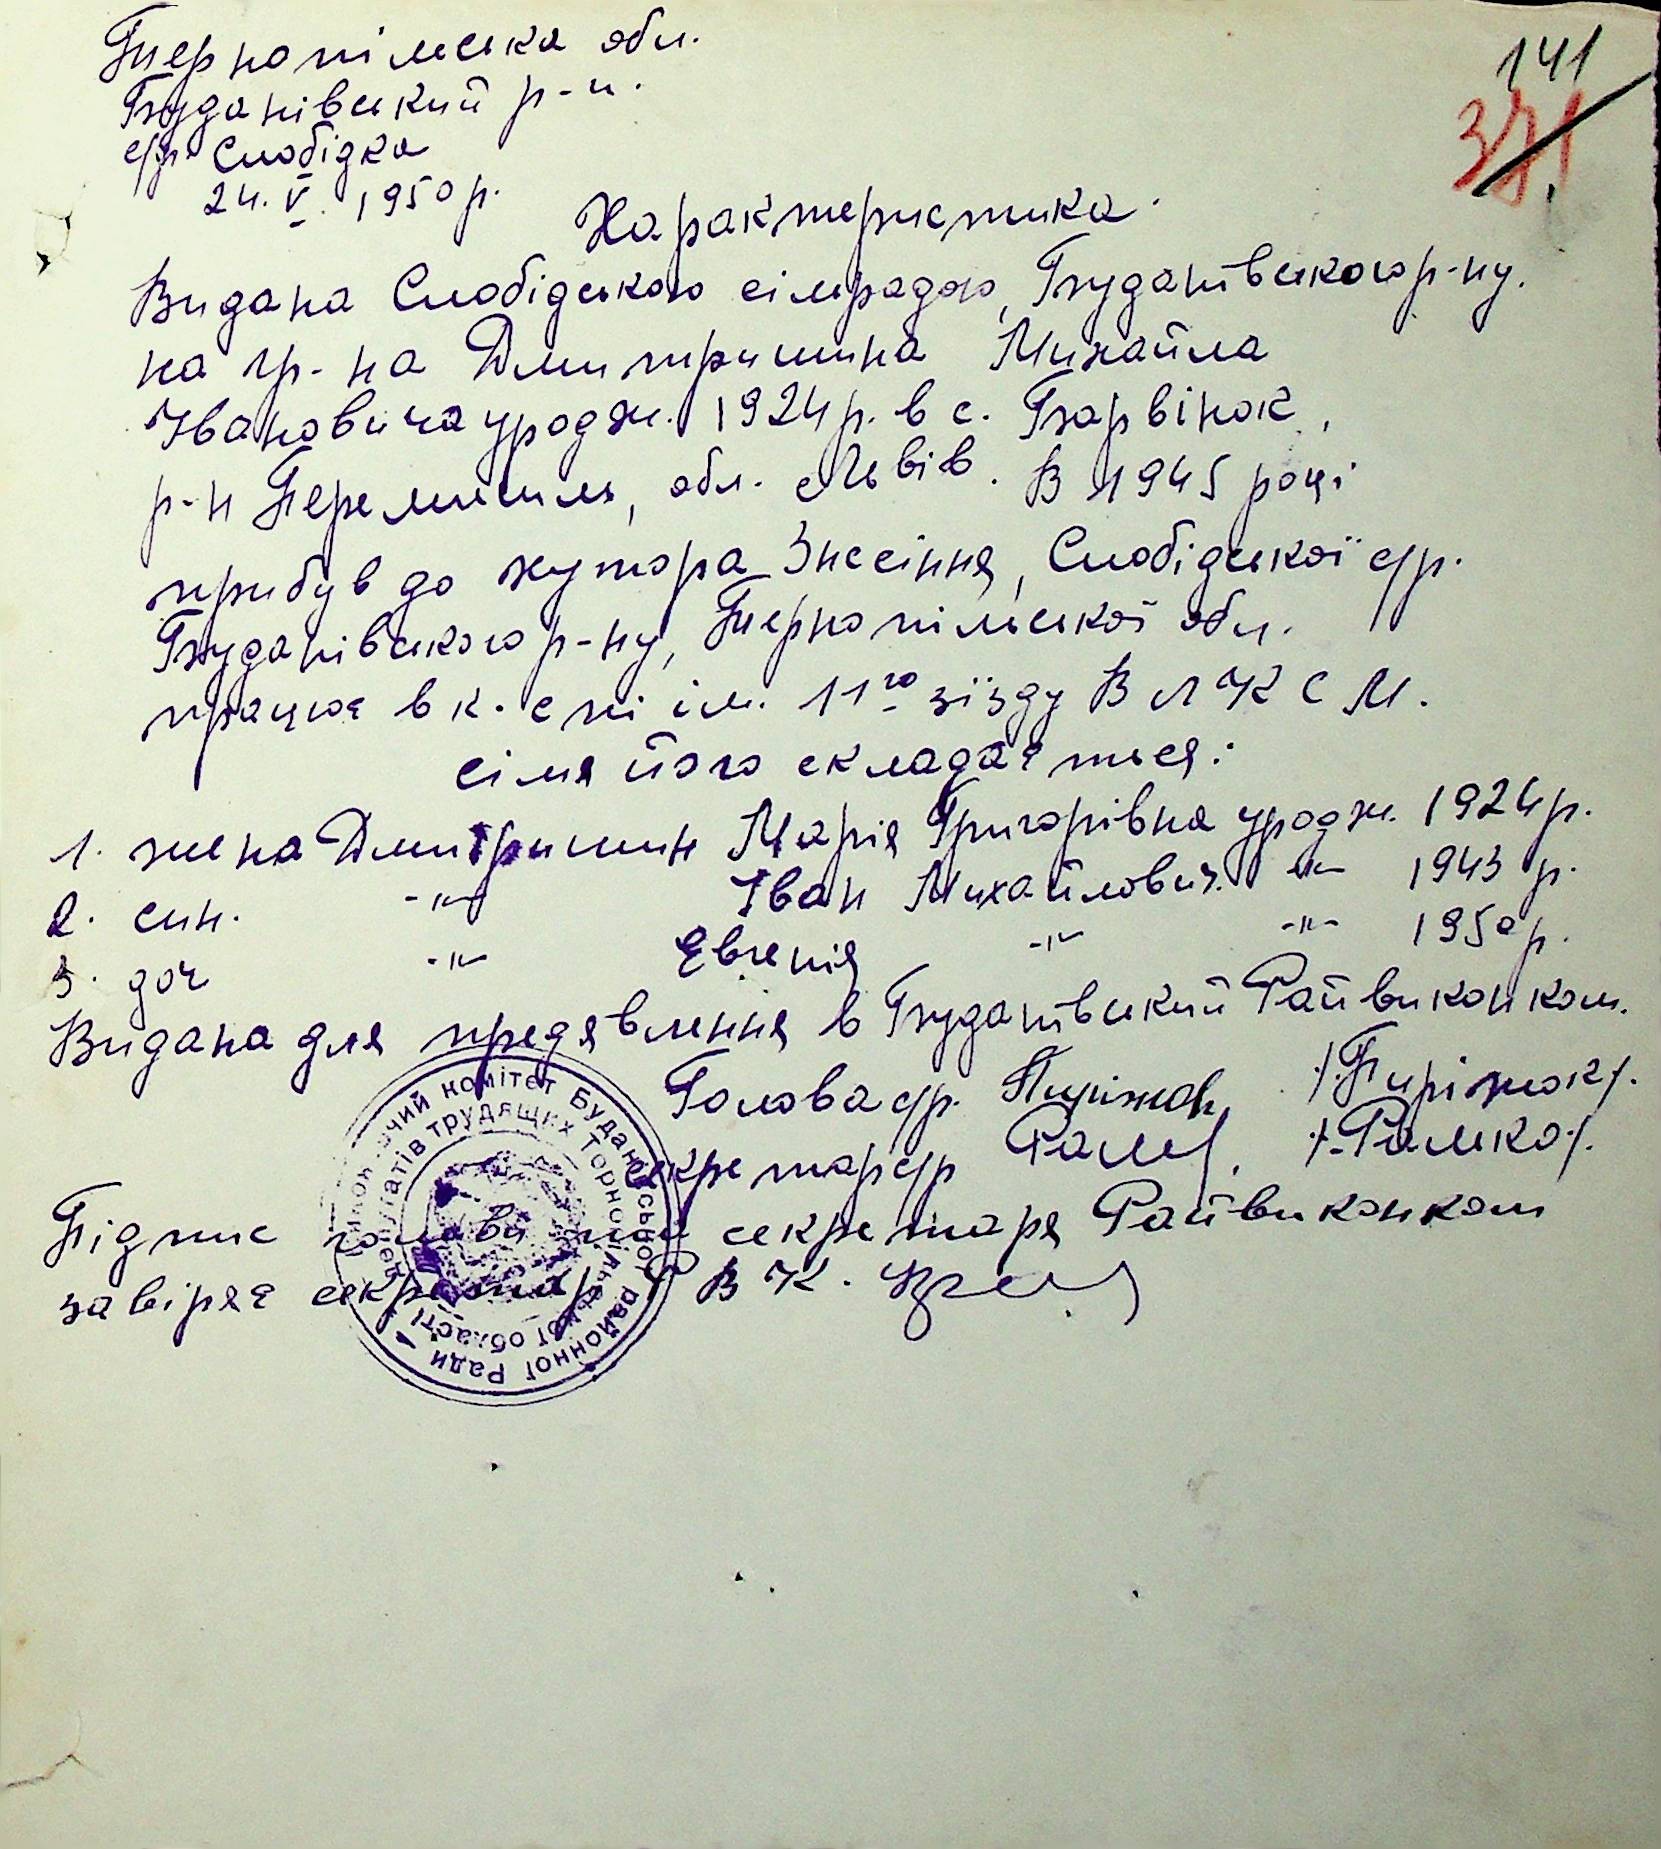 141
371
Тернопільська обл.
Буданівський р-н.
с/р. Слобідка
24. V. 1950 р.
Характеристика.
Видана Слобідською сільрадою, Буданівського р-ну.
на гр-на Дмитришина Михайла
Івановича уродж. 1924 р. в с. Барвінок,
р-н Перемишль, обл. Львів. В 1945 році
прибув до хутора Знесіння, Слобідської с/р.
Буданівського р-ну, Тернопільської обл.
працює в к-спі ім. 11го зїзду ВЛКСМ.
сімя його складається:
1. жена Дмитришин Марія Григорівна уродж. 1924 р.
2. син. -"- Іван Михайлович. -"- 1943 р.
3. доч -"- Євгенія -"- -"- 1950 р.
Видана для предявлення в Буданівський Райвиконком.
Голова с/р. Пиріжок /Пиріжок/.
секретар с/р /Ралько/.
Підпис голови секретаря Райвиконком
завіряє секретар РВК.
комітет Буданівської районної Ради
депутатів трудящих Тернопільської області